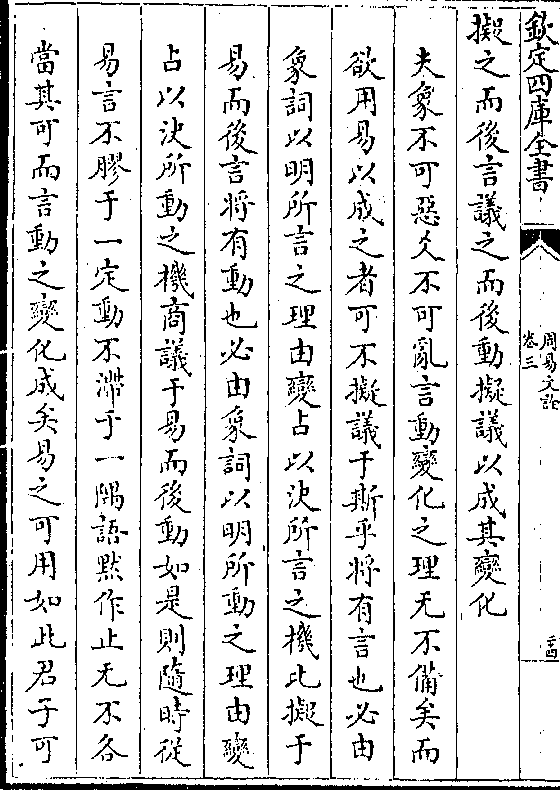 欽定四庫全書
周易文詮
卷三
擬之而後言議之而後動擬議以成其變化
夫象不可惡爻不可亂言動變化之理无不備矣而
欲用易以成之者可不擬議于斯乎將有言也必由
象詞以明所言之理由變占以決所言之機比擬于
易而後言將有動也必由象詞以明所動之理由變
占以決所動之機商議于易而後動如是則隨時從
易言不膠于一定動不滯于一隅語默作止无不各
當其可而言動之變化成矣易之可用如此君子可